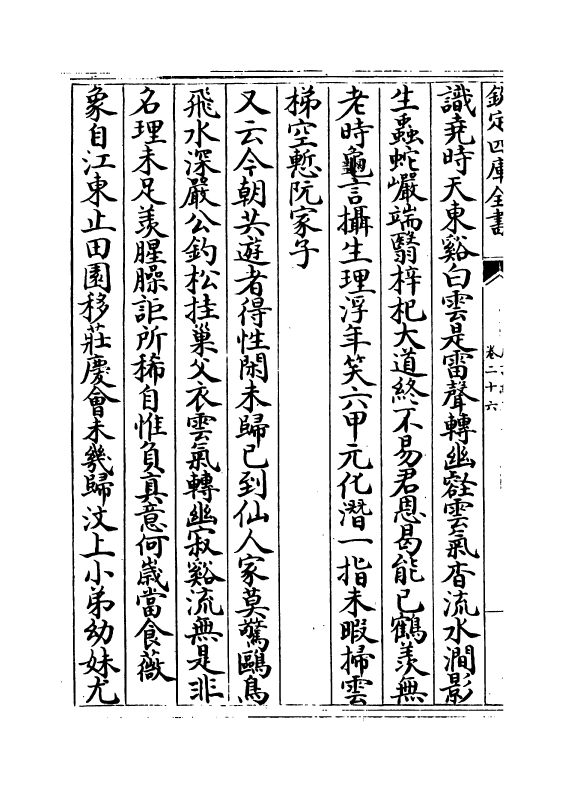 欽定四庫全書
卷二十六
識堯時天東谿白雲是雷聲轉幽壑雲氣杳流水澗影
生蟲蛇巖端翳梓杞大道終不易君恩曷能已鶴羨無
老時龜言攝生理浮年笑六甲元化潛一指未暇掃雲
梯空慙阮家子
又云今朝共遊者得性閑未歸已到仙人家莫驚鷗鳥
飛水深嚴公釣松挂巢父衣雲氣轉幽寂谿流無是非
名理未足羨腥臊詎所稀自惟負真意何歲當食薇
象自江東止田園移莊慶會未幾歸汶上小弟幼妹尤